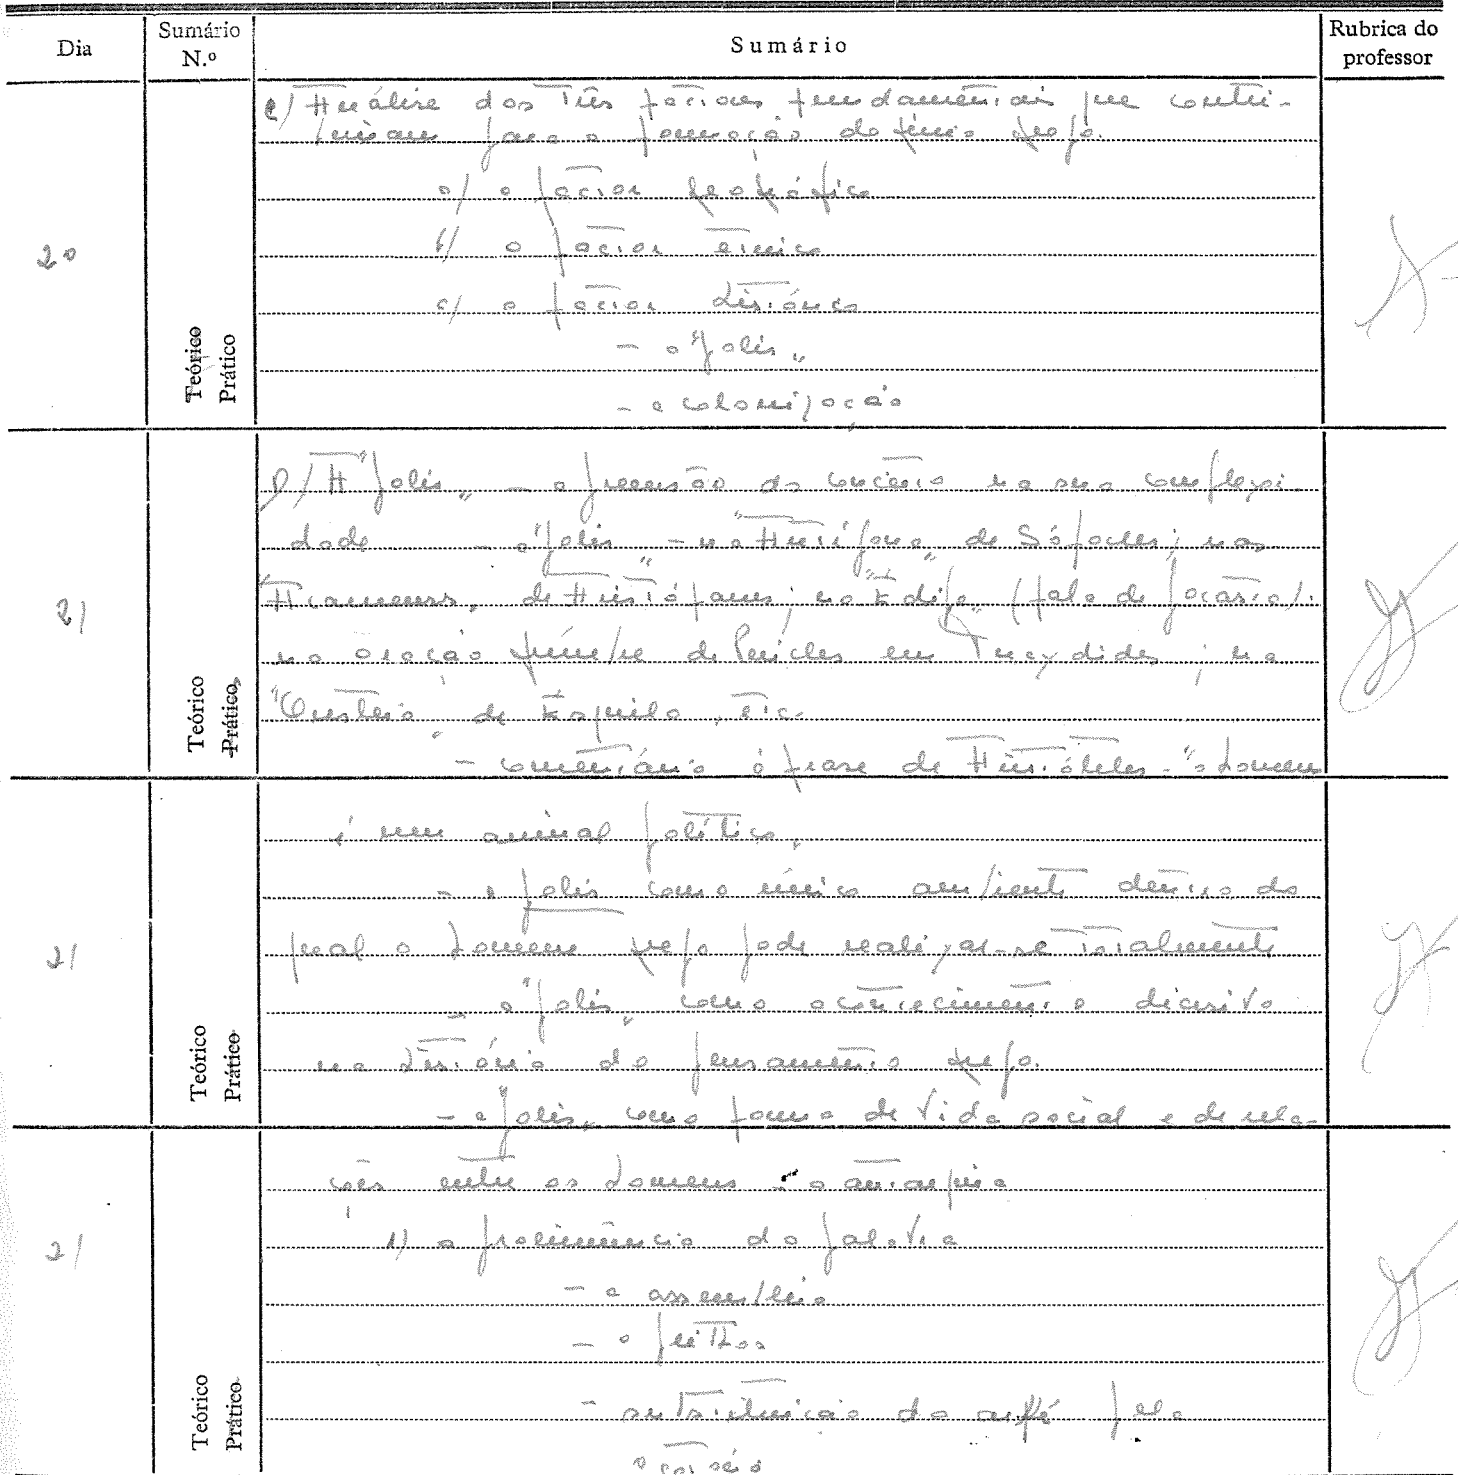 Dia
Sumário N.º
Sumário
Rubrica do professor
20
Teórico
Prático
e) Análise dos três factores fundamentais que contri-
buiram para a formação do génio grego.
a) o factor geográfico
b) o factor étnico
c) o factor histórico
- a "polis"
- a colonização
21
Teórico
Prático
f) A "polis" - apreensão do conceito na sua complexi-
dade - a "polis" - na "Antígona" de Sófocles; nos
Acarnenses, de Aristófanes; no "Édipo" (fala de Jocasta);
na oração fúnebre de Péricles em Tucydides; na
"Oresteia" de Ésquilo, etc.
- comentário à frase de Aristóteles - "o homem
21
Teórico
Prático
é um animal político"
- a polis como único ambiente dentro do
qual o homem grego pode realizar-se totalmente
- a "polis" como acontecimento decisivo
na história do pensamento grego.
- a "polis" como forma de vida social e de rela-
21
Teórico
Prático
ções entre os homens - a autarquia
1) a proeminência da palavra
- a assembleia
- a peithos
- substituição do pela